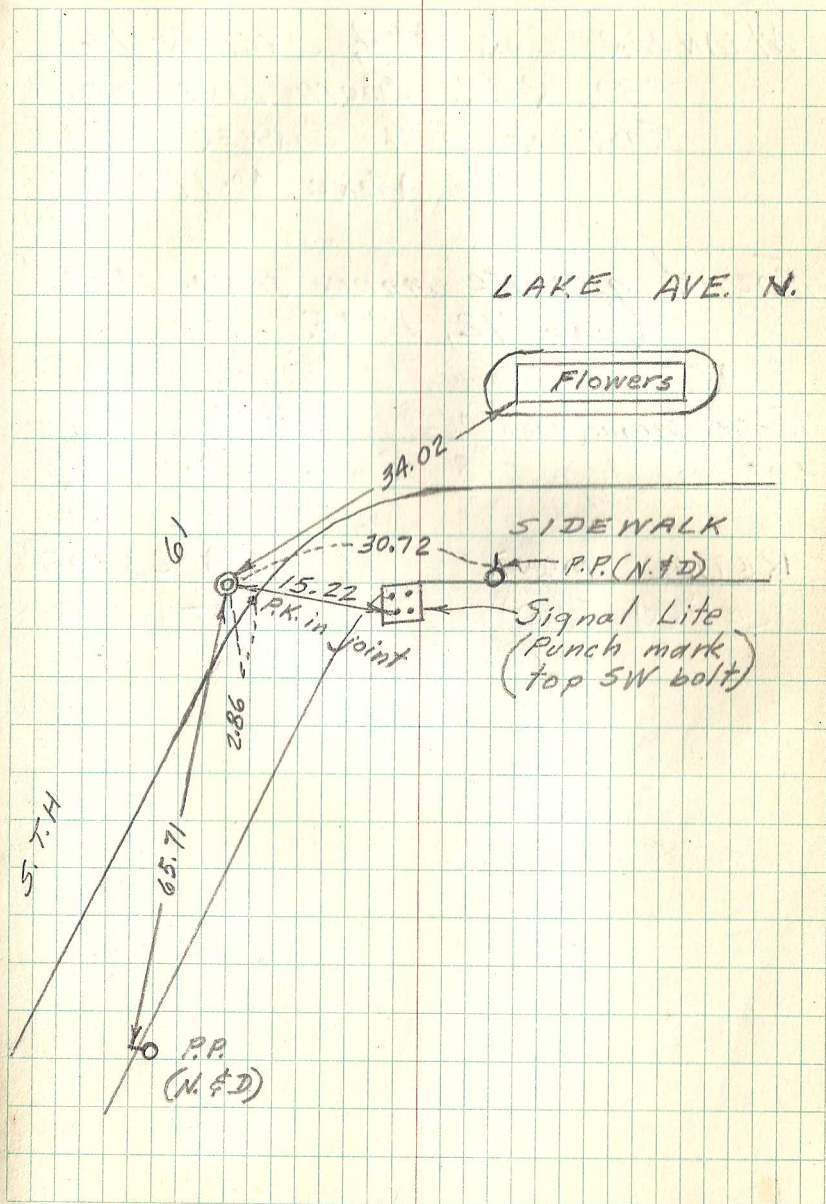 LAKE AVE. N.
Flowers
34.02
61
30.72
SIDEWALK
P.P. (N. & D)
15.22
P.K. in joint
Signal Lite
(Punch mark
top SW bolt)
2.86
S.T.H
65.71
P.P.
(N. & D)